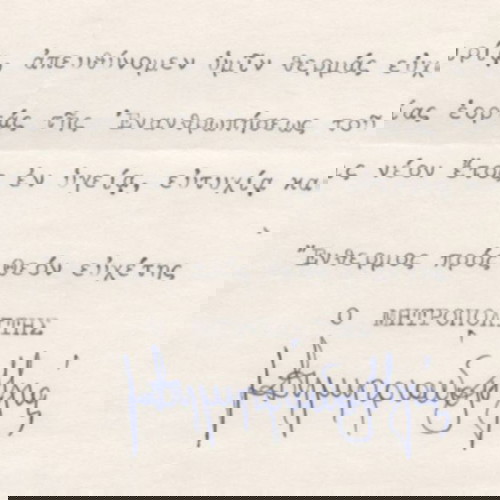 ἀπευθύνομεν ὑμῖν θερμάς εὐχ
ἑορτάς τῆς Ἐνανθρωπήσεως τοῦ
νέον Ἔτος ἐν ὑγείᾳ, εὐτυχίᾳ κα
Ἔνθερμος πρός Θεόν εὐχέτης
Ο ΜΗΤΡΟΠΟΛΙΤΗΣ